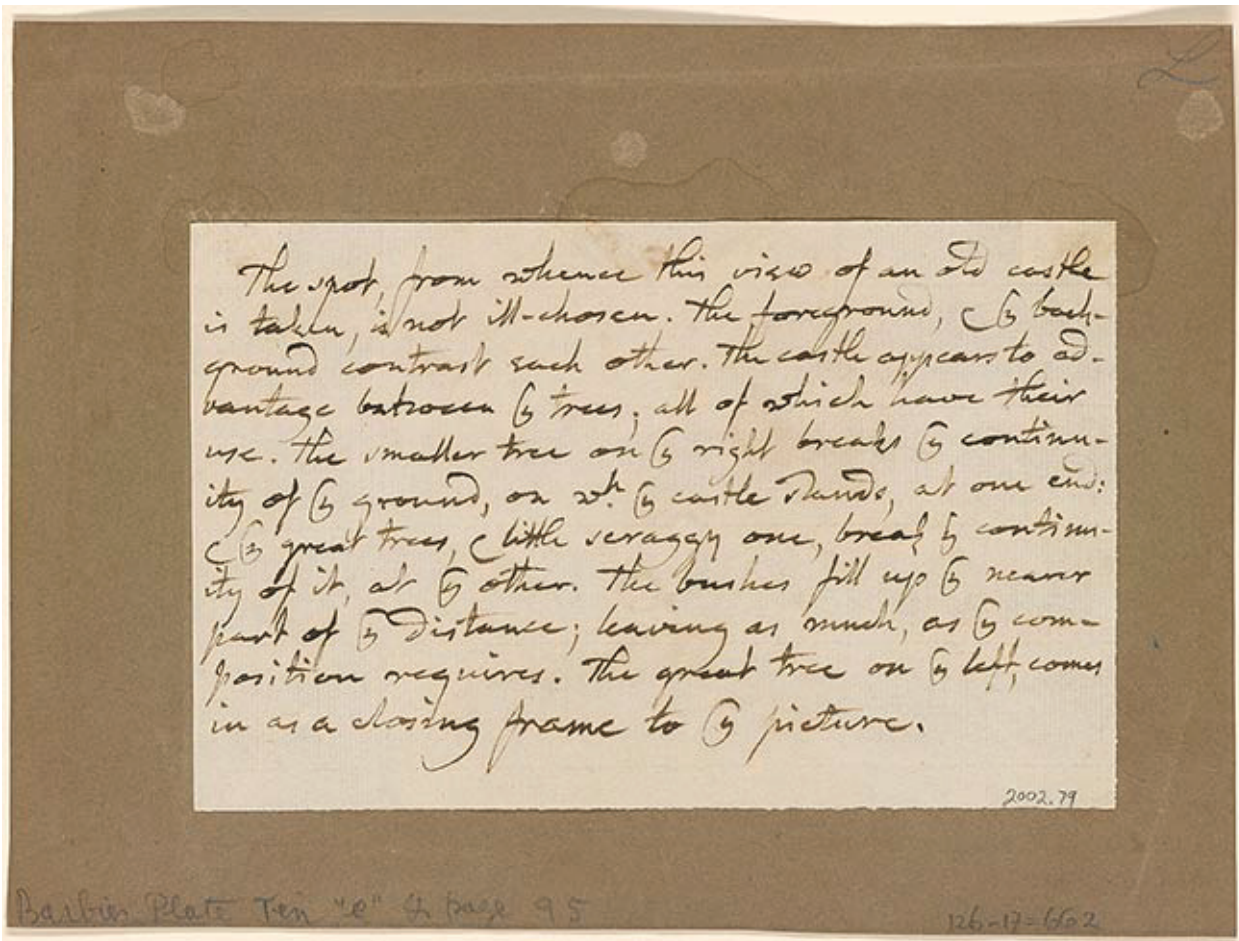 L
The spot, from whence this view of an old castle
is taken, is not ill-chosen. The foreground, & ye back-
ground contrast each other. The castle appears to ad-
vantage between ye trees; all of which have their
use. The smaller tree on ye right breaks ye continu-
ity of ye ground, on wh. ye castle stands, at one end:
& ye great trees, & little scraggy one, break ye continu-
ity of it, at ye other. The bushes fill up ye nearer
part of ye distance; leaving as much, as ye com-
position requires. The great tree on ye left, comes
in as a closing frame to ye picture.
2002.79
Barbier Plate Ten & page 95